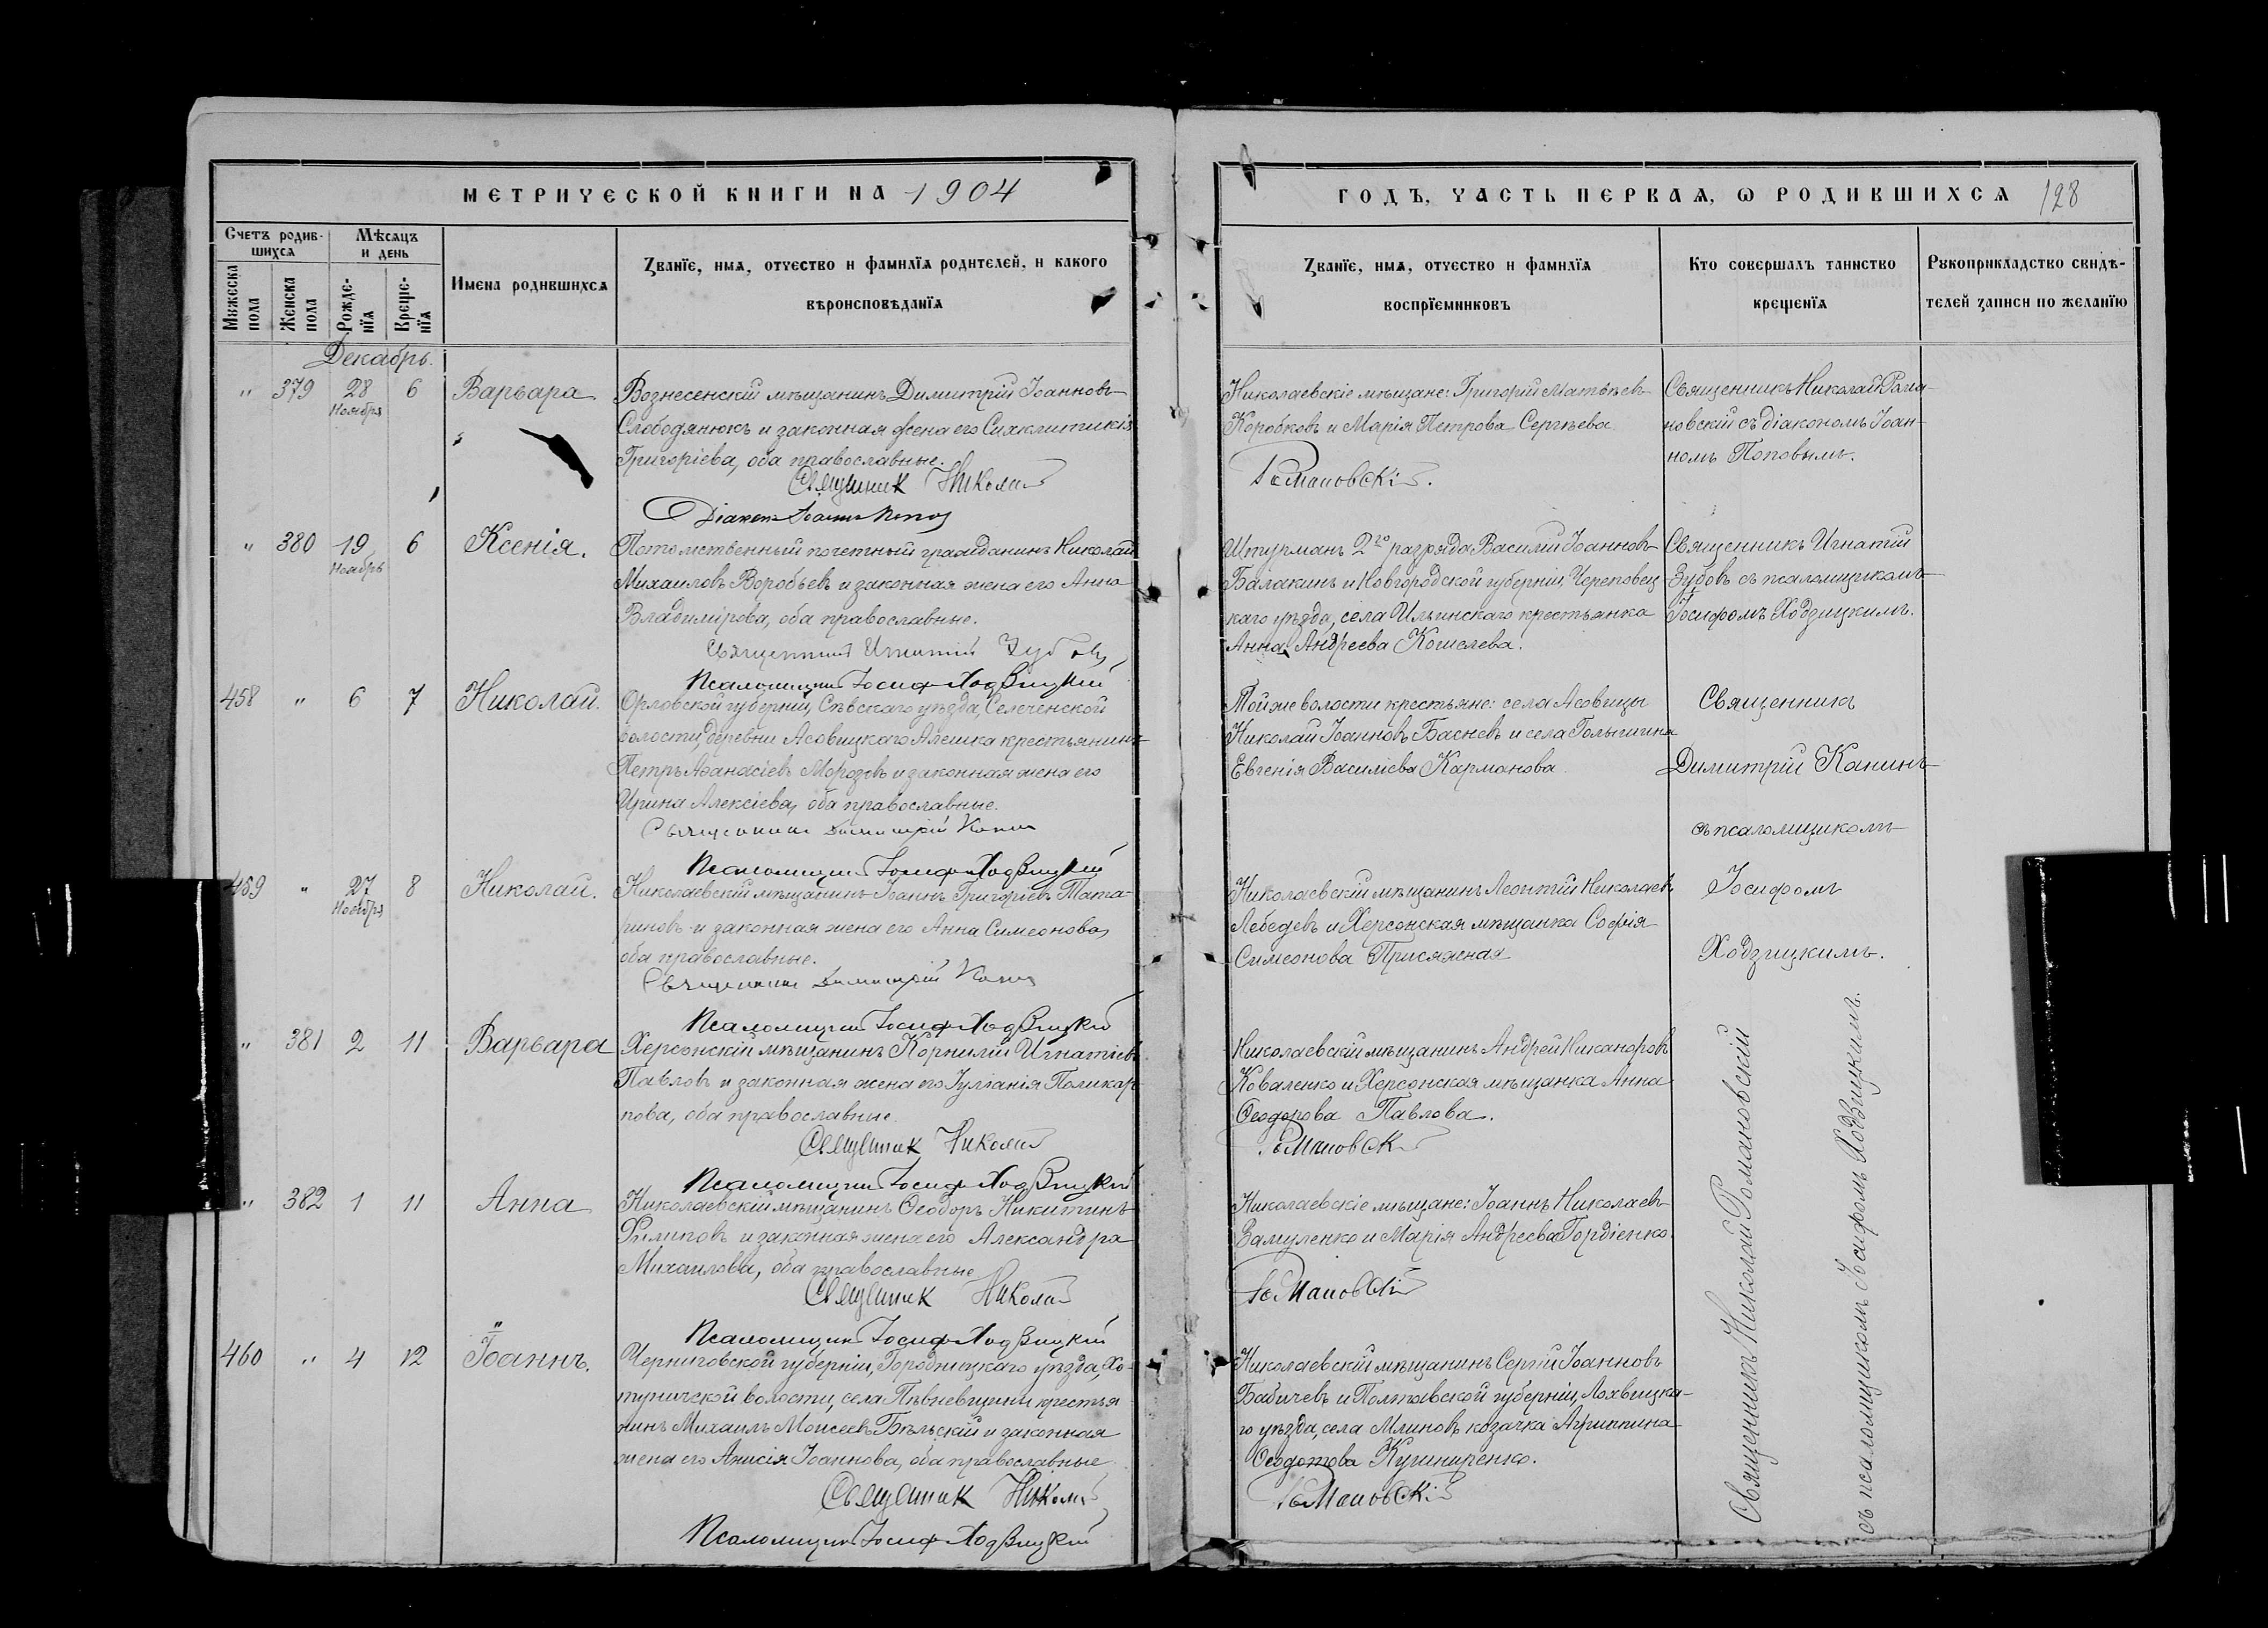 МЕТРИЧЕСКОЙ КНИГИ НА 1904
Счетъ родив-
шихся
Мѣсяцъ
и день
Мужеска
пола
Женска
пола
Рожде-
нїя
Креще-
нїя
Имена родившихся
Званїе, имя, отчество и фамилїя родителей, и какого
вѣроисповѣданїя
Декабрь.
" 379 28 6 Варвара
Ноября
Вознесенскій мѣщанинъ Димитрій Іоанновъ
Слободянюкъ и законная жена его Синклитикія
Григоріева, оба православные.
Священник Николай
Діаконъ Іоаннъ Попов
" 380 19 6 Ксенія.
Ноябрь
Потомственный почетный гражданинъ Николай
Михаиловъ Воробьевъ и законная жена его Анна
Владимірова, оба православные.
Священникъ Игнатій Зубовъ
Псаломщикъ Іосифъ Ходзицкій
458 " 6 7 Николай.
Орловской губерніи, Сѣвскаго уѣзда, Селеченской
волости, деревни Асовицкаго Алешка крестьянинъ
Петръ Аѳанасіевъ Морозовъ и законная жена его
Ирина Алексіева, оба православные.
Священникъ Димитрій Канин
Псаломщикъ Іосифъ Ходзицкій
459 " 27 8 Николай.
Ноября
Николаевскій мѣщанинъ Іоаннъ Григоріевъ Тата-
риновъ и законная жена его Анна Симеонова,
оба православные.
Священникъ Димитрій Канин
Псаломщикъ Іосифъ Ходзицкій
" 381 2 11 Варвара
Херсонскій мѣщанинъ Корнилій Игнатіевъ
Павловъ и законная жена его Іуліанія Поликар
пова, оба православные.
Священник Николай
Псаломщикъ Іосифъ Ходзицкій
" 382 1 11 Анна
Николаевскій мѣщанинъ Ѳеодоръ Никитинъ
Филиповъ и законная жена его Александра
Михаилова, оба православные
Священник Николай
Псаломщикъ Іосифъ Ходзицкій
460 " 4 12 Іоаннъ.
Черниговской губерніи, Городницкаго уѣзда, Хо-
туничской волости, села Пѣвневщины крестья
нинъ Михаилъ Моисеевъ Бѣльскій и законная
жена его Анисія Іоаннова, оба православные
Священник Николай
Псаломщикъ Іосифъ Ходзицкій
ГОДЪ, ЧАСТЬ ПЕРВАЯ, Ѡ РОДИВШИХСЯ 128
Званїе, имя, отчество и фамилїя
воспрїемниковъ
Кто совершалъ таинство
крещенїя
Рукоприкладство свидѣ-
телей записи по желанїю
Николаевскіе мѣщане: Григорій Матвѣевъ
Коробковъ и Марія Петрова Сергѣева
Романовскій.
Священникъ Николай Рома-
новскій съ діакономъ Іоан-
номъ Поповымъ.
Штурманъ 2го разряда Василій Іоанновъ
Балакинъ и Новгородской губерніи, Череповец
каго уѣзда, села Ильинскаго крестьянка
Анна Андреева Кошелева.
Священникъ Игнатій
Зубовъ съ псаломщикомъ
Іосифомъ Ходзицкимъ.
Той же волости крестьяне: села Асовицы
Николай Іоанновъ Басневъ и села Голышина
Евгенія Василіева Карманова.
Священникъ
Димитрій Канинъ
съ псаломщикомъ
Іосифомъ
Ходзицкимъ.
Николаевскій мѣщанинъ Леонтій Николаевъ
Лебедевъ и Херсонская мѣщанка Софія
Симеонова Присяжная
Николаевскій мѣщанинъ Андрей Никаноровъ
Коваленко и Херсонская мѣщанка Анна
Ѳеодорова Павлова.
Романовск
Николаевскіе мѣщане: Іоаннъ Николаевъ
Замуленко и Марія Андреева Гордіенко
Романовскій
Николаевскій мѣщанинъ Сергій Іоанновъ
Бабичевъ и Полтавской губерніи, Лохвицка-
го уѣзда, села Млиновъ козачка Агриппина
Ѳеодотова Кушниренко.
Романовскій
Священникъ Николай Романовскій
съ псаломщикомъ Іосифомъ Ходзицкимъ.